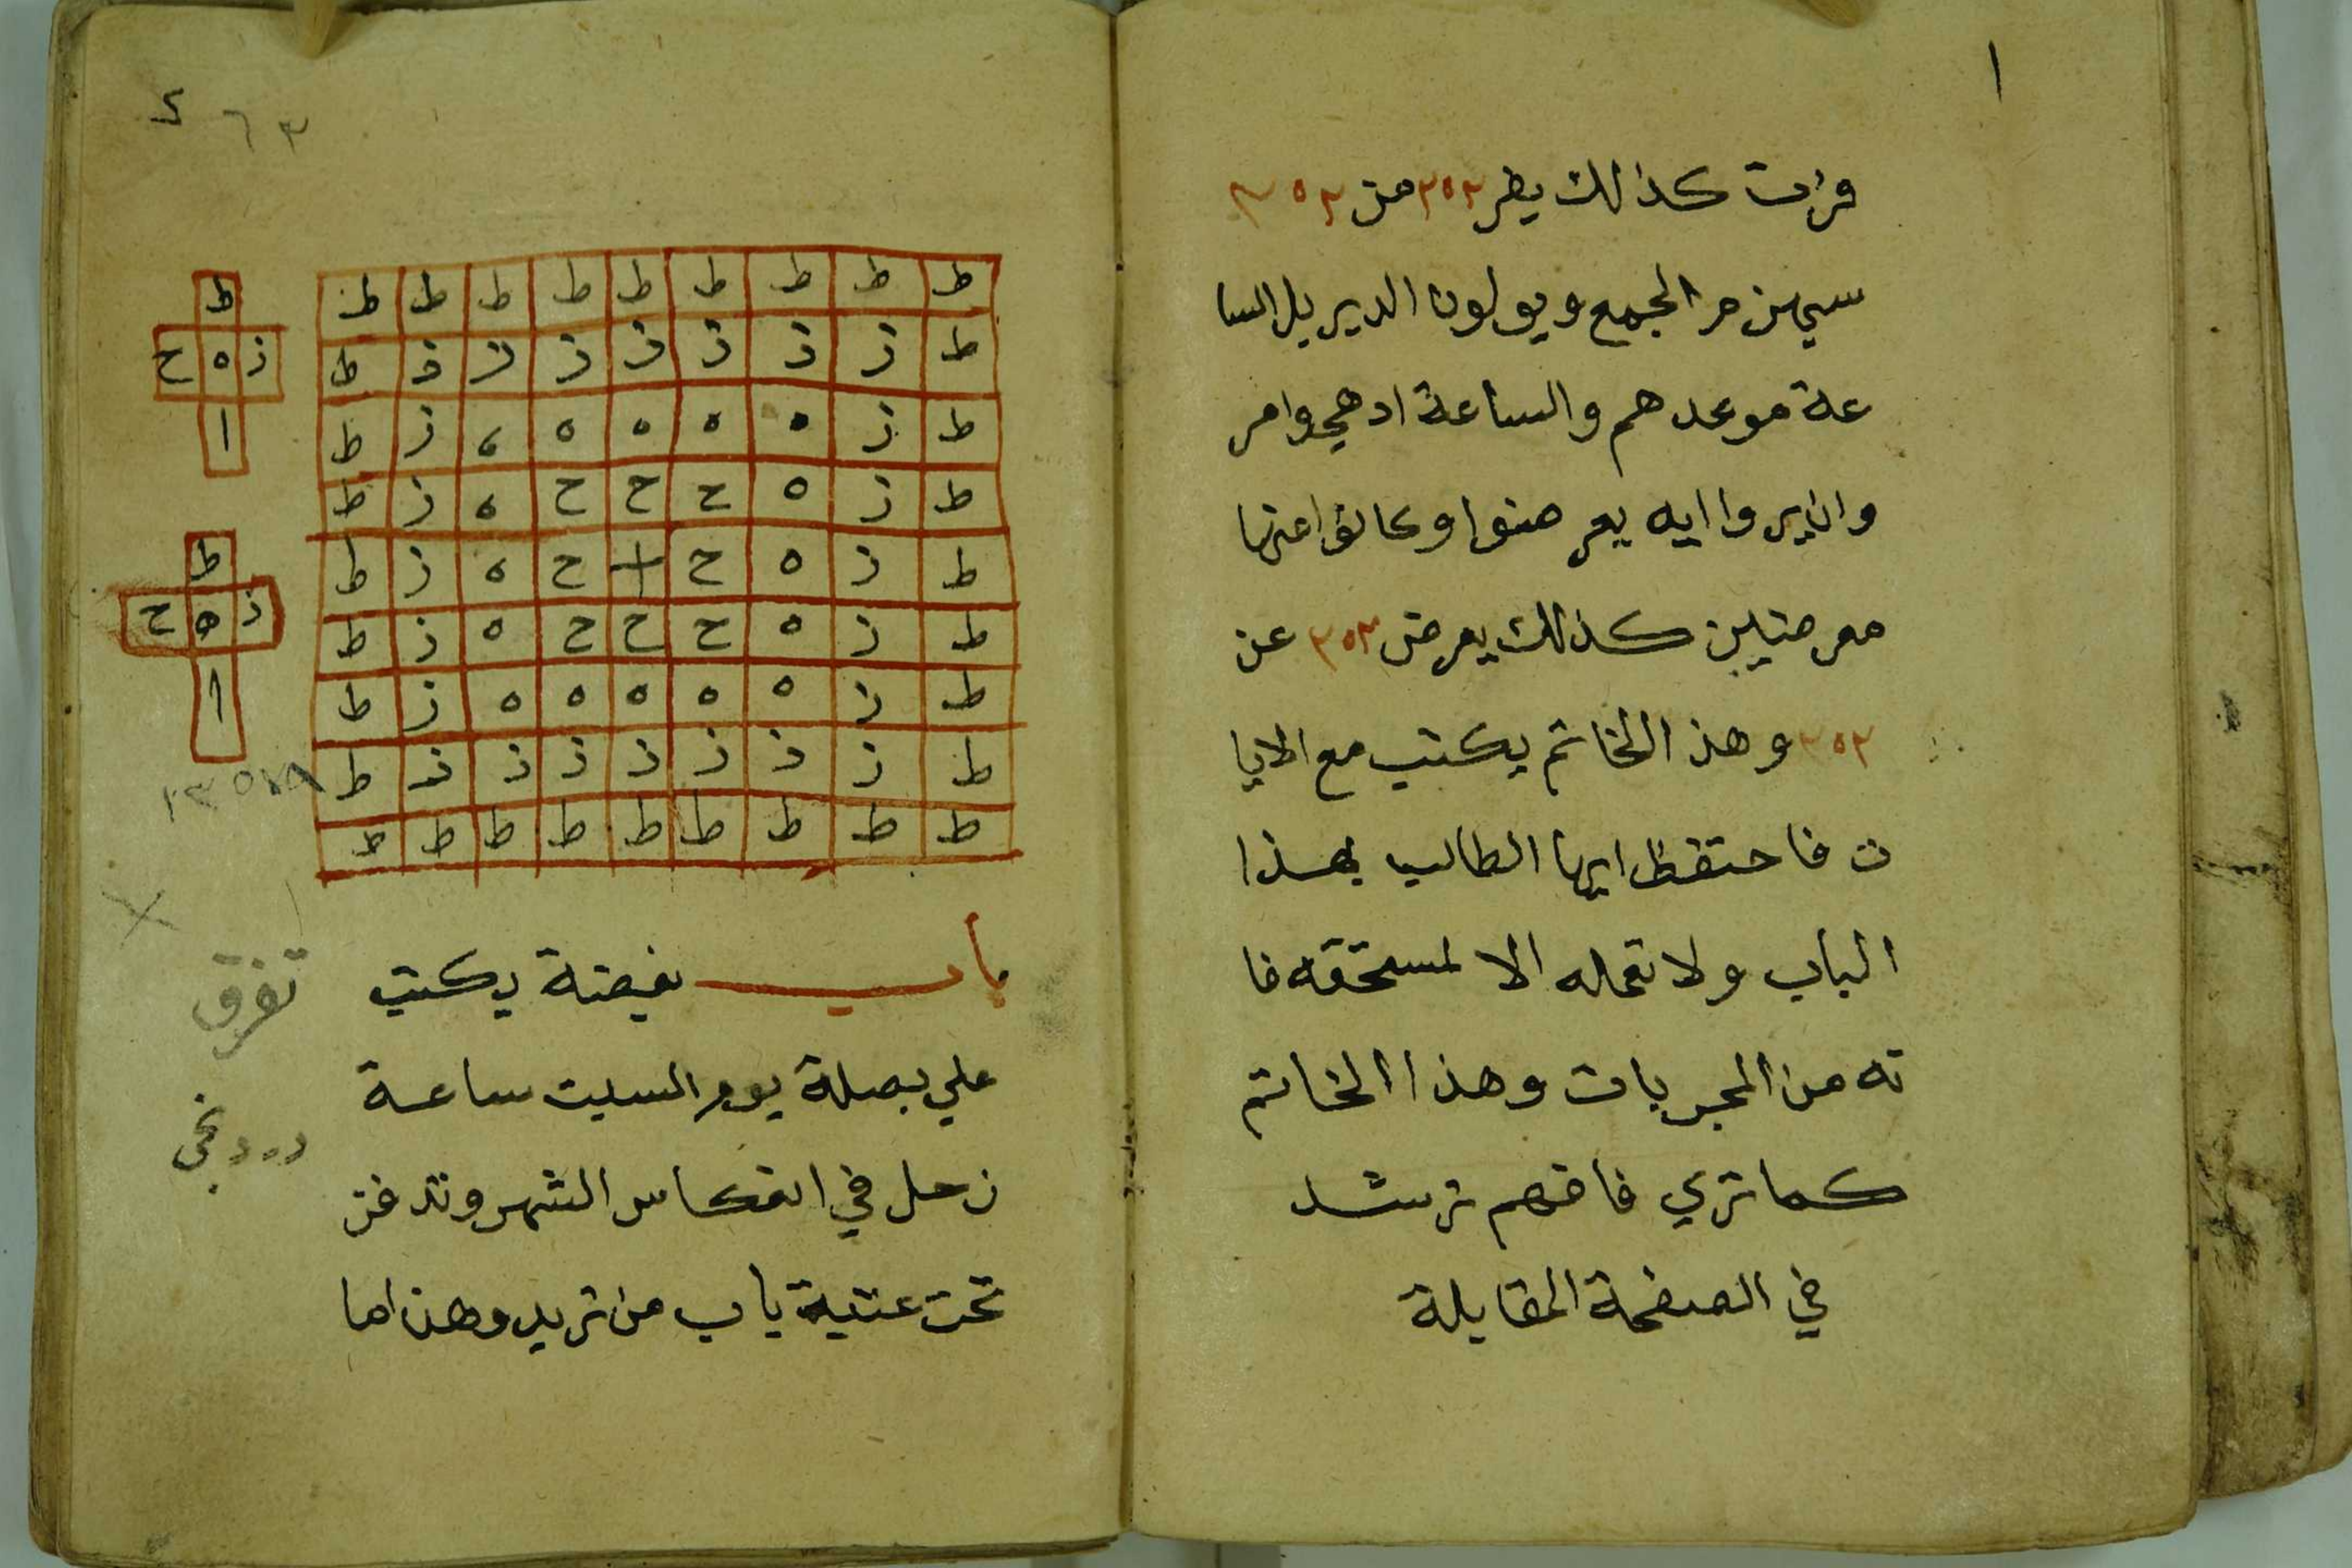 ١
فرات كذالك يطر ٣٥٢ من ٣٥٢
سيهزمر الجمع ويولون الدبر بل السا
عة موعدهم والساعة ادهي وامر
وان يروا ايه يعرضوا وكانوا عنها
معرضين كذالك يعرض ٣٥٢ عن
٣٥٢ وهذ الخاتم يكتب مع الايا
ت فاحتفظ ايها الطالب بهذا
الباب ولا تعمله الا لمستحقه فا
نه من المجربات وهذا الخاتم
كما تري فافهم ترشد
في الصفحة المقابلة
٦٣
ط ط ط ط ط ط ط ط ط
ط ز ز ز ز ز ز ز ط
ط ز ه ه ه ه ه ز ط
ط ز ه ح ح ح ه ز ط
ط ز ه ح + ح ه ز ط
ط ز ه ح ح ح ه ز ط
ط ز ه ه ه ه ه ز ط
ط ز ز ز ز ز ز ز ط
ط ط ط ط ط ط ط ط ط
ط
ز ه ح
ا
ط
ز ه ح
ا
باب بغيضة يكتب
علي بصلة يوم السبت ساعة
زحل في انعكاس الشهر وتدفن
تحت عتبة باب من تريد وهذا ما
تفرق